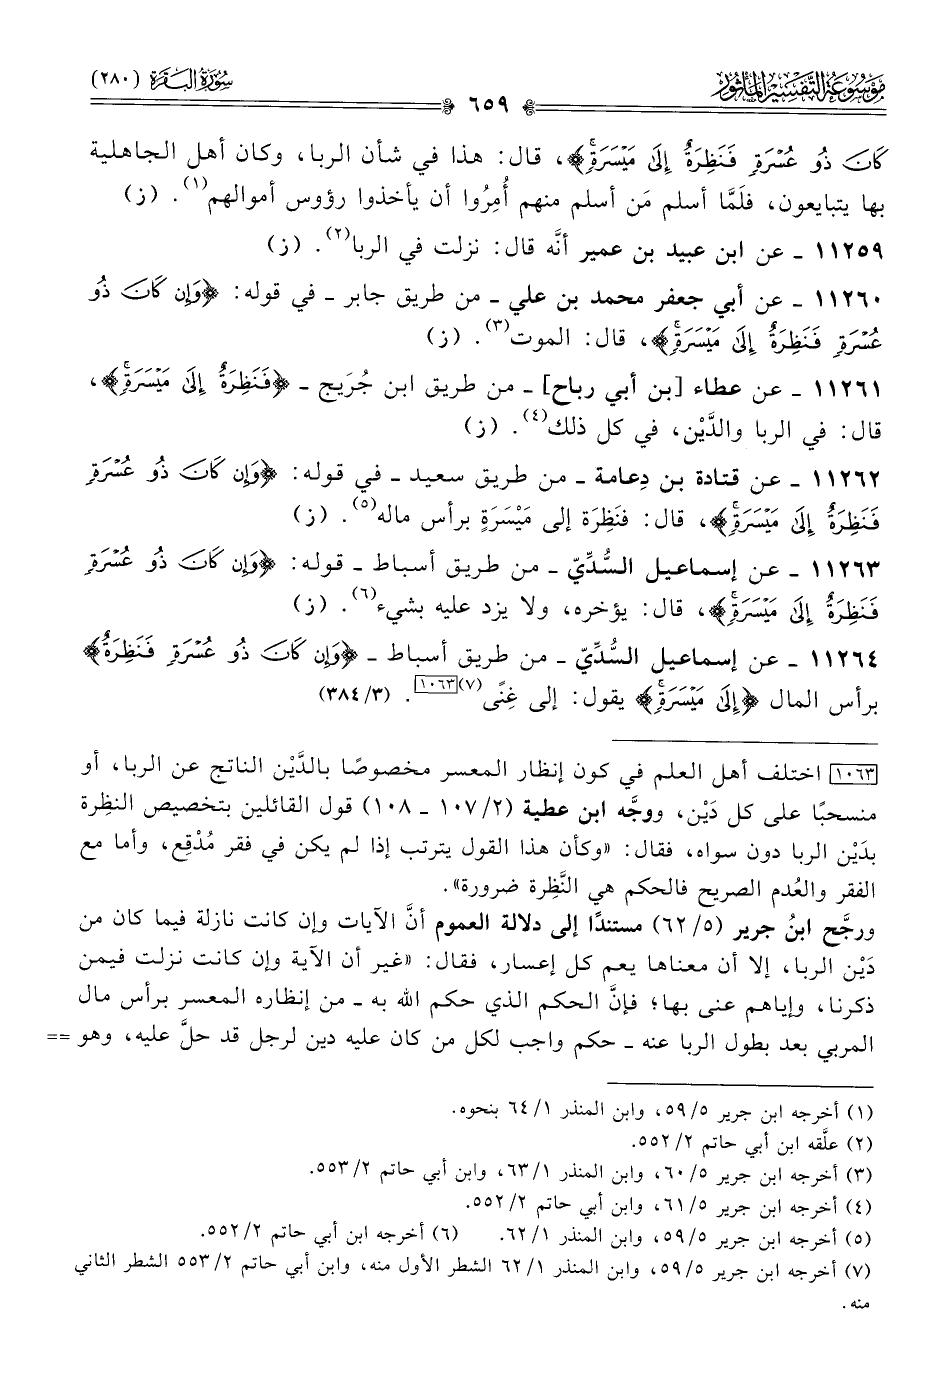 موسوعة التفسير المأثور
٦٥٩
سورة البقرة (٢٨٠)
كَانَ ذُو عُسْرَةٍ فَنَظِرَةٌ إِلَىٰ مَيْسَرَةٍ﴾، قال: هذا في شأن الربا، وكان أهل الجاهلية
بها يتبايعون، فلَمَّا أسلم مَن أسلم منهم أُمِرُوا أن يأخذوا رؤوس أموالهم(١). (ز)
١١٢٥٩ ـ عن ابن عبيد بن عمير أنَّه قال: نزلت في الربا(٢). (ز)
١١٢٦٠ ـ عن أبي جعفر محمد بن علي ـ من طريق جابر ـ في قوله: ﴿وَإِن كَانَ ذُو
عُسْرَةٍ فَنَظِرَةٌ إِلَىٰ مَيْسَرَةٍ﴾، قال: الموت(٣). (ز)
١١٢٦١ ـ عن عطاء [بن أبي رباح] ـ من طريق ابن جُرَيج ـ ﴿فَنَظِرَةٌ إِلَىٰ مَيْسَرَةٍ﴾،
قال: في الربا والدَّيْن، في كل ذلك(٤). (ز)
١١٢٦٢ ـ عن قتادة بن دِعامة ـ من طريق سعيد ـ في قوله: ﴿وَإِن كَانَ ذُو عُسْرَةٍ
فَنَظِرَةٌ إِلَىٰ مَيْسَرَةٍ﴾، قال: فنَظِرَة إلى مَيْسَرَةٍ برأس ماله(٥). (ز)
١١٢٦٣ ـ عن إسماعيل السُّدِّيّ ـ من طريق أسباط ـ قوله: ﴿وَإِن كَانَ ذُو عُسْرَةٍ
فَنَظِرَةٌ إِلَىٰ مَيْسَرَةٍ﴾، قال: يؤخره، ولا يزد عليه بشيء(٦). (ز)
١١٢٦٤ ـ عن إسماعيل السُّدِّيِّ ـ من طريق أسباط ـ ﴿وَإِن كَانَ ذُو عُسْرَةٍ فَنَظِرَةٌ﴾
برأس المال ﴿إِلَىٰ مَيْسَرَةٍ﴾ يقول: إلى غِنًى(٧)[١٠٦٣]. (٣/ ٣٨٤)
[١٠٦٣] اختلف أهل العلم في كون إنظار المعسر مخصوصًا بالدَّيْن الناتج عن الربا، أو
منسحبًا على كل دَيْن، ووجَّه ابن عطية (٢/ ١٠٧ ـ ١٠٨) قول القائلين بتخصيص النظِرة
بدَيْن الربا دون سواه، فقال: «وكأن هذا القول يترتب إذا لم يكن في فقر مُدْقِع، وأما مع
الفقر والعُدم الصريح فالحكم هي النَّظِرة ضرورة».
ورجَّح ابنُ جرير (٥/ ٦٢) مستندًا إلى دلالة العموم أنَّ الآيات وإن كانت نازلة فيما كان من
دَيْن الربا، إلا أن معناها يعم كل إعسار، فقال: «غير أن الآية وإن كانت نزلت فيمن
ذكرنا، وإياهم عنى بها؛ فإنَّ الحكم الذي حكم الله به ـ من إنظاره المعسر برأس مال
المربي بعد بطول الربا عنه ـ حكم واجب لكل من كان عليه دين لرجل قد حلَّ عليه، وهو ==
(١) أخرجه ابن جرير ٥/ ٥٩، وابن المنذر ١/ ٦٤ بنحوه.
(٢) علَّقه ابن أبي حاتم ٢/ ٥٥٢.
(٣) أخرجه ابن جرير ٥/ ٦٠، وابن المنذر ١/ ٦٣، وابن أبي حاتم ٢/ ٥٥٣.
(٤) أخرجه ابن جرير ٥/ ٦١، وابن أبي حاتم ٢/ ٥٥٢.
(٥) أخرجه ابن جرير ٥/ ٥٩، وابن المنذر ١/ ٦٢. (٦) أخرجه ابن أبي حاتم ٢/ ٥٥٢.
(٧) أخرجه ابن جرير ٥/ ٥٩، وابن المنذر ١/ ٦٢ الشطر الأول منه، وابن أبي حاتم ٢/ ٥٥٣ الشطر الثاني
منه.